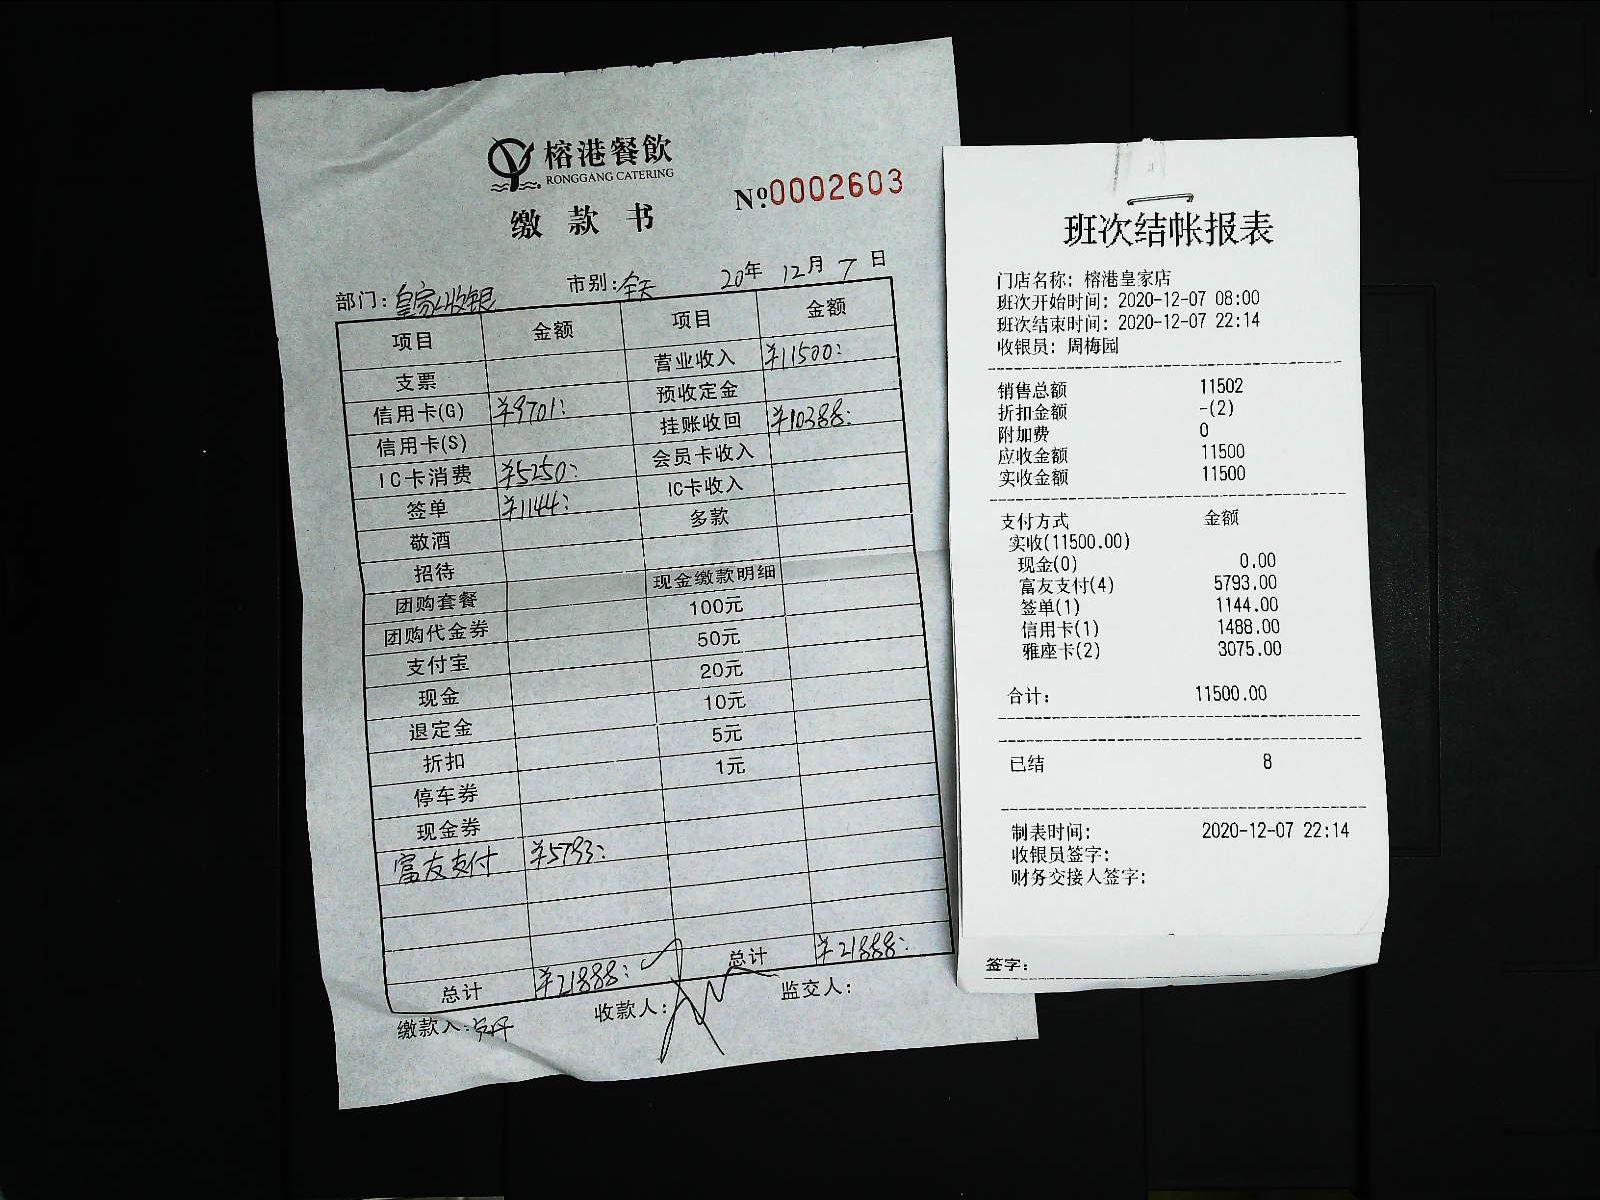 榕港餐飲
RONGGANG CATERING
缴款书
№0002603
部门：皇家收银 市别：全天 20年 12月 7日
项目 金额 项目 金额
支票 营业收入 ¥11500：
信用卡(G) ¥9701： 预收定金
信用卡(S) 挂账收回 ¥10388：
IC卡消费 ¥5250： 会员卡收入
签单 ¥1144： IC卡收入
敬酒 多款
招待
团购套餐 现金缴款明细
团购代金券 100元
支付宝 50元
现金 20元
退定金 10元
折扣 5元
停车券 1元
现金券
富友支付 ¥5793：
总计 ¥21888： 总计 ¥21888：
缴款人： 收款人： 监交人：
班次结帐报表
门店名称: 榕港皇家店
班次开始时间: 2020-12-07 08:00
班次结束时间: 2020-12-07 22:14
收银员: 周梅园
销售总额 11502
折扣金额 -(2)
附加费 0
应收金额 11500
实收金额 11500
支付方式 金额
实收(11500.00)
现金(0) 0.00
富友支付(4) 5793.00
签单(1) 1144.00
信用卡(1) 1488.00
雅座卡(2) 3075.00
合计: 11500.00
已结 8
制表时间: 2020-12-07 22:14
收银员签字:
财务交接人签字:
签字: